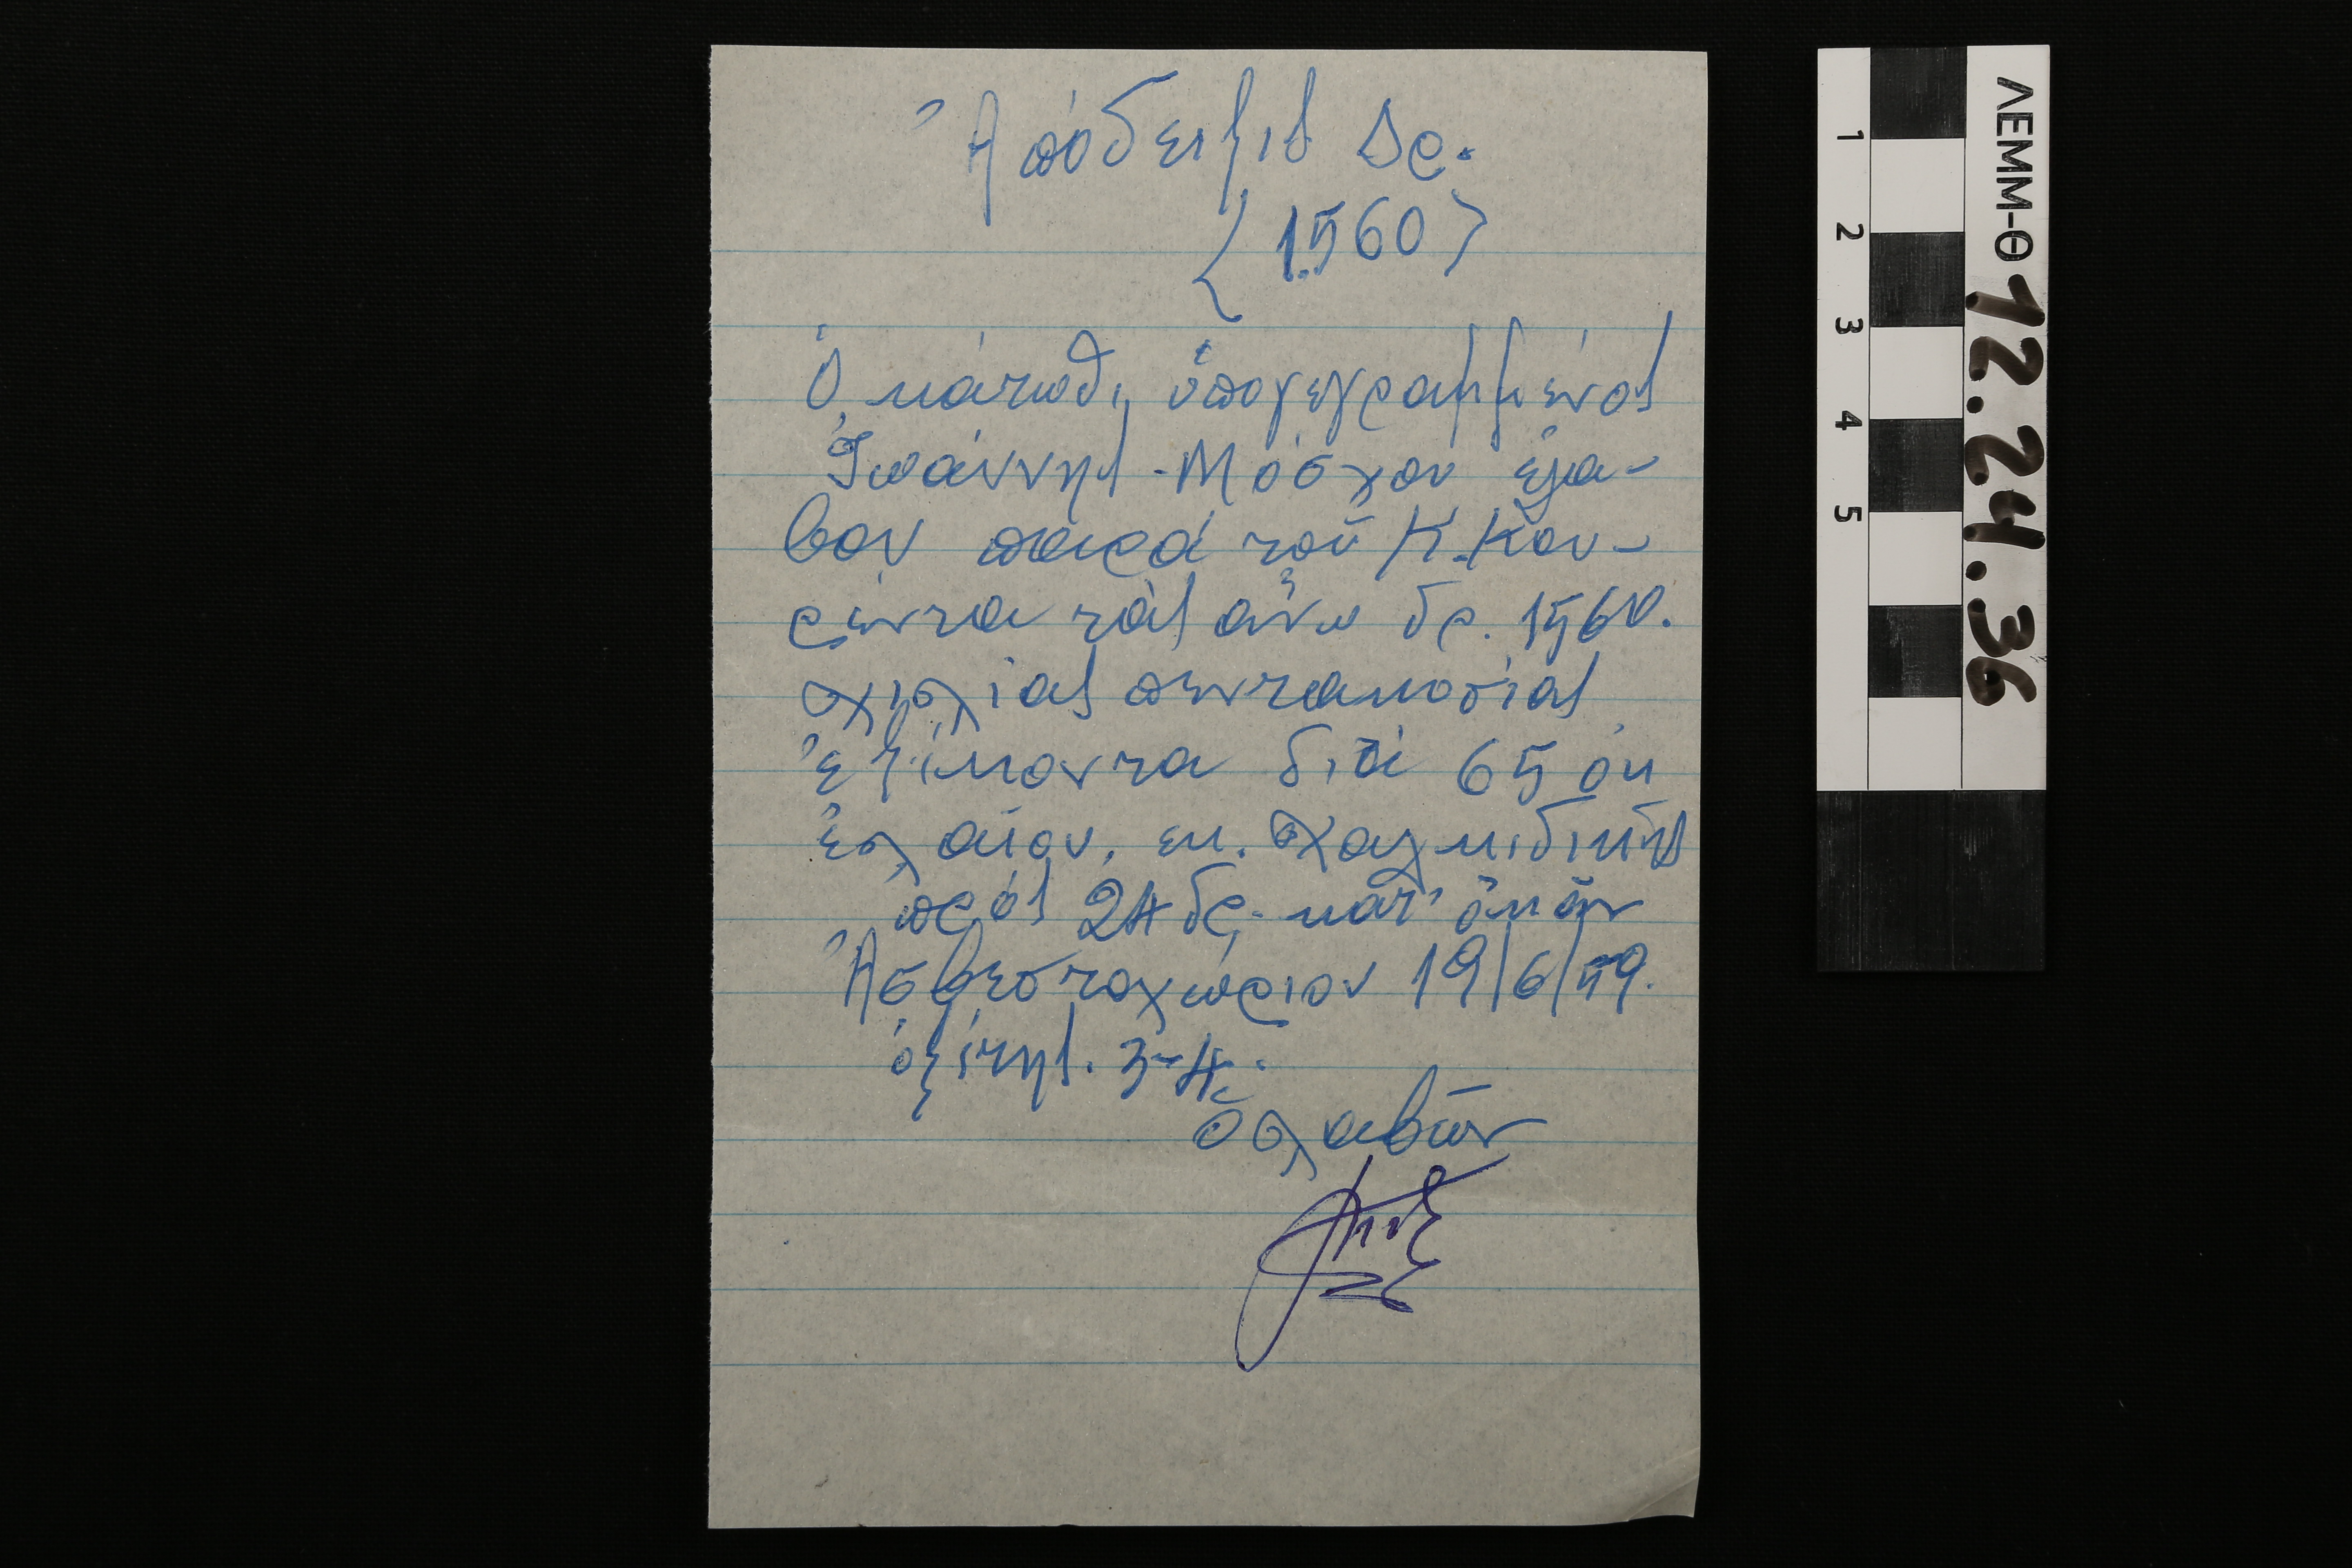 Ἀπόδειξις Δρ.
{1.560}
Ὁ κάτωθι ὑπογεγραμμένος
Ἰωάννης Μόσχου ἔλα-
βον παρά τοῦ Κ. Κου-
ρέντα τάς ἄνω δρ. 1560.
χιλίας πεντακοσίας
ἑξήκοντα διά 65 ὀκ
ἐλαίου, εκ. Χαλκιδικῆς
πρός 24 δρ. κατ' ὀκᾶν
Ἀσβεστοχώριον 19/6/59.
ὀξύτης. 3-4.
Ὁ λαβών
ΛΕΜΜ-Θ 12.24.36
1
2
3
4
5